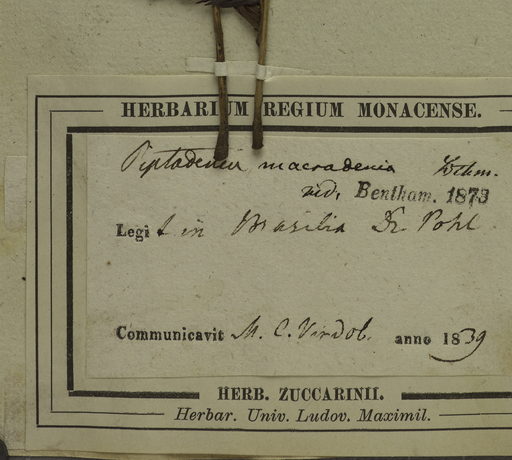 HERBARIUM REGIUM MONACENSE.
Piptadenia macradenia Bthm.
vid. Bentham. 1873
Legit in Brasilia Dr. Pohl
Communicavit M. C. Vindob. anno 1839
HERB. ZUCCARINII.
Herbar. Univ. Ludov. Maximil.